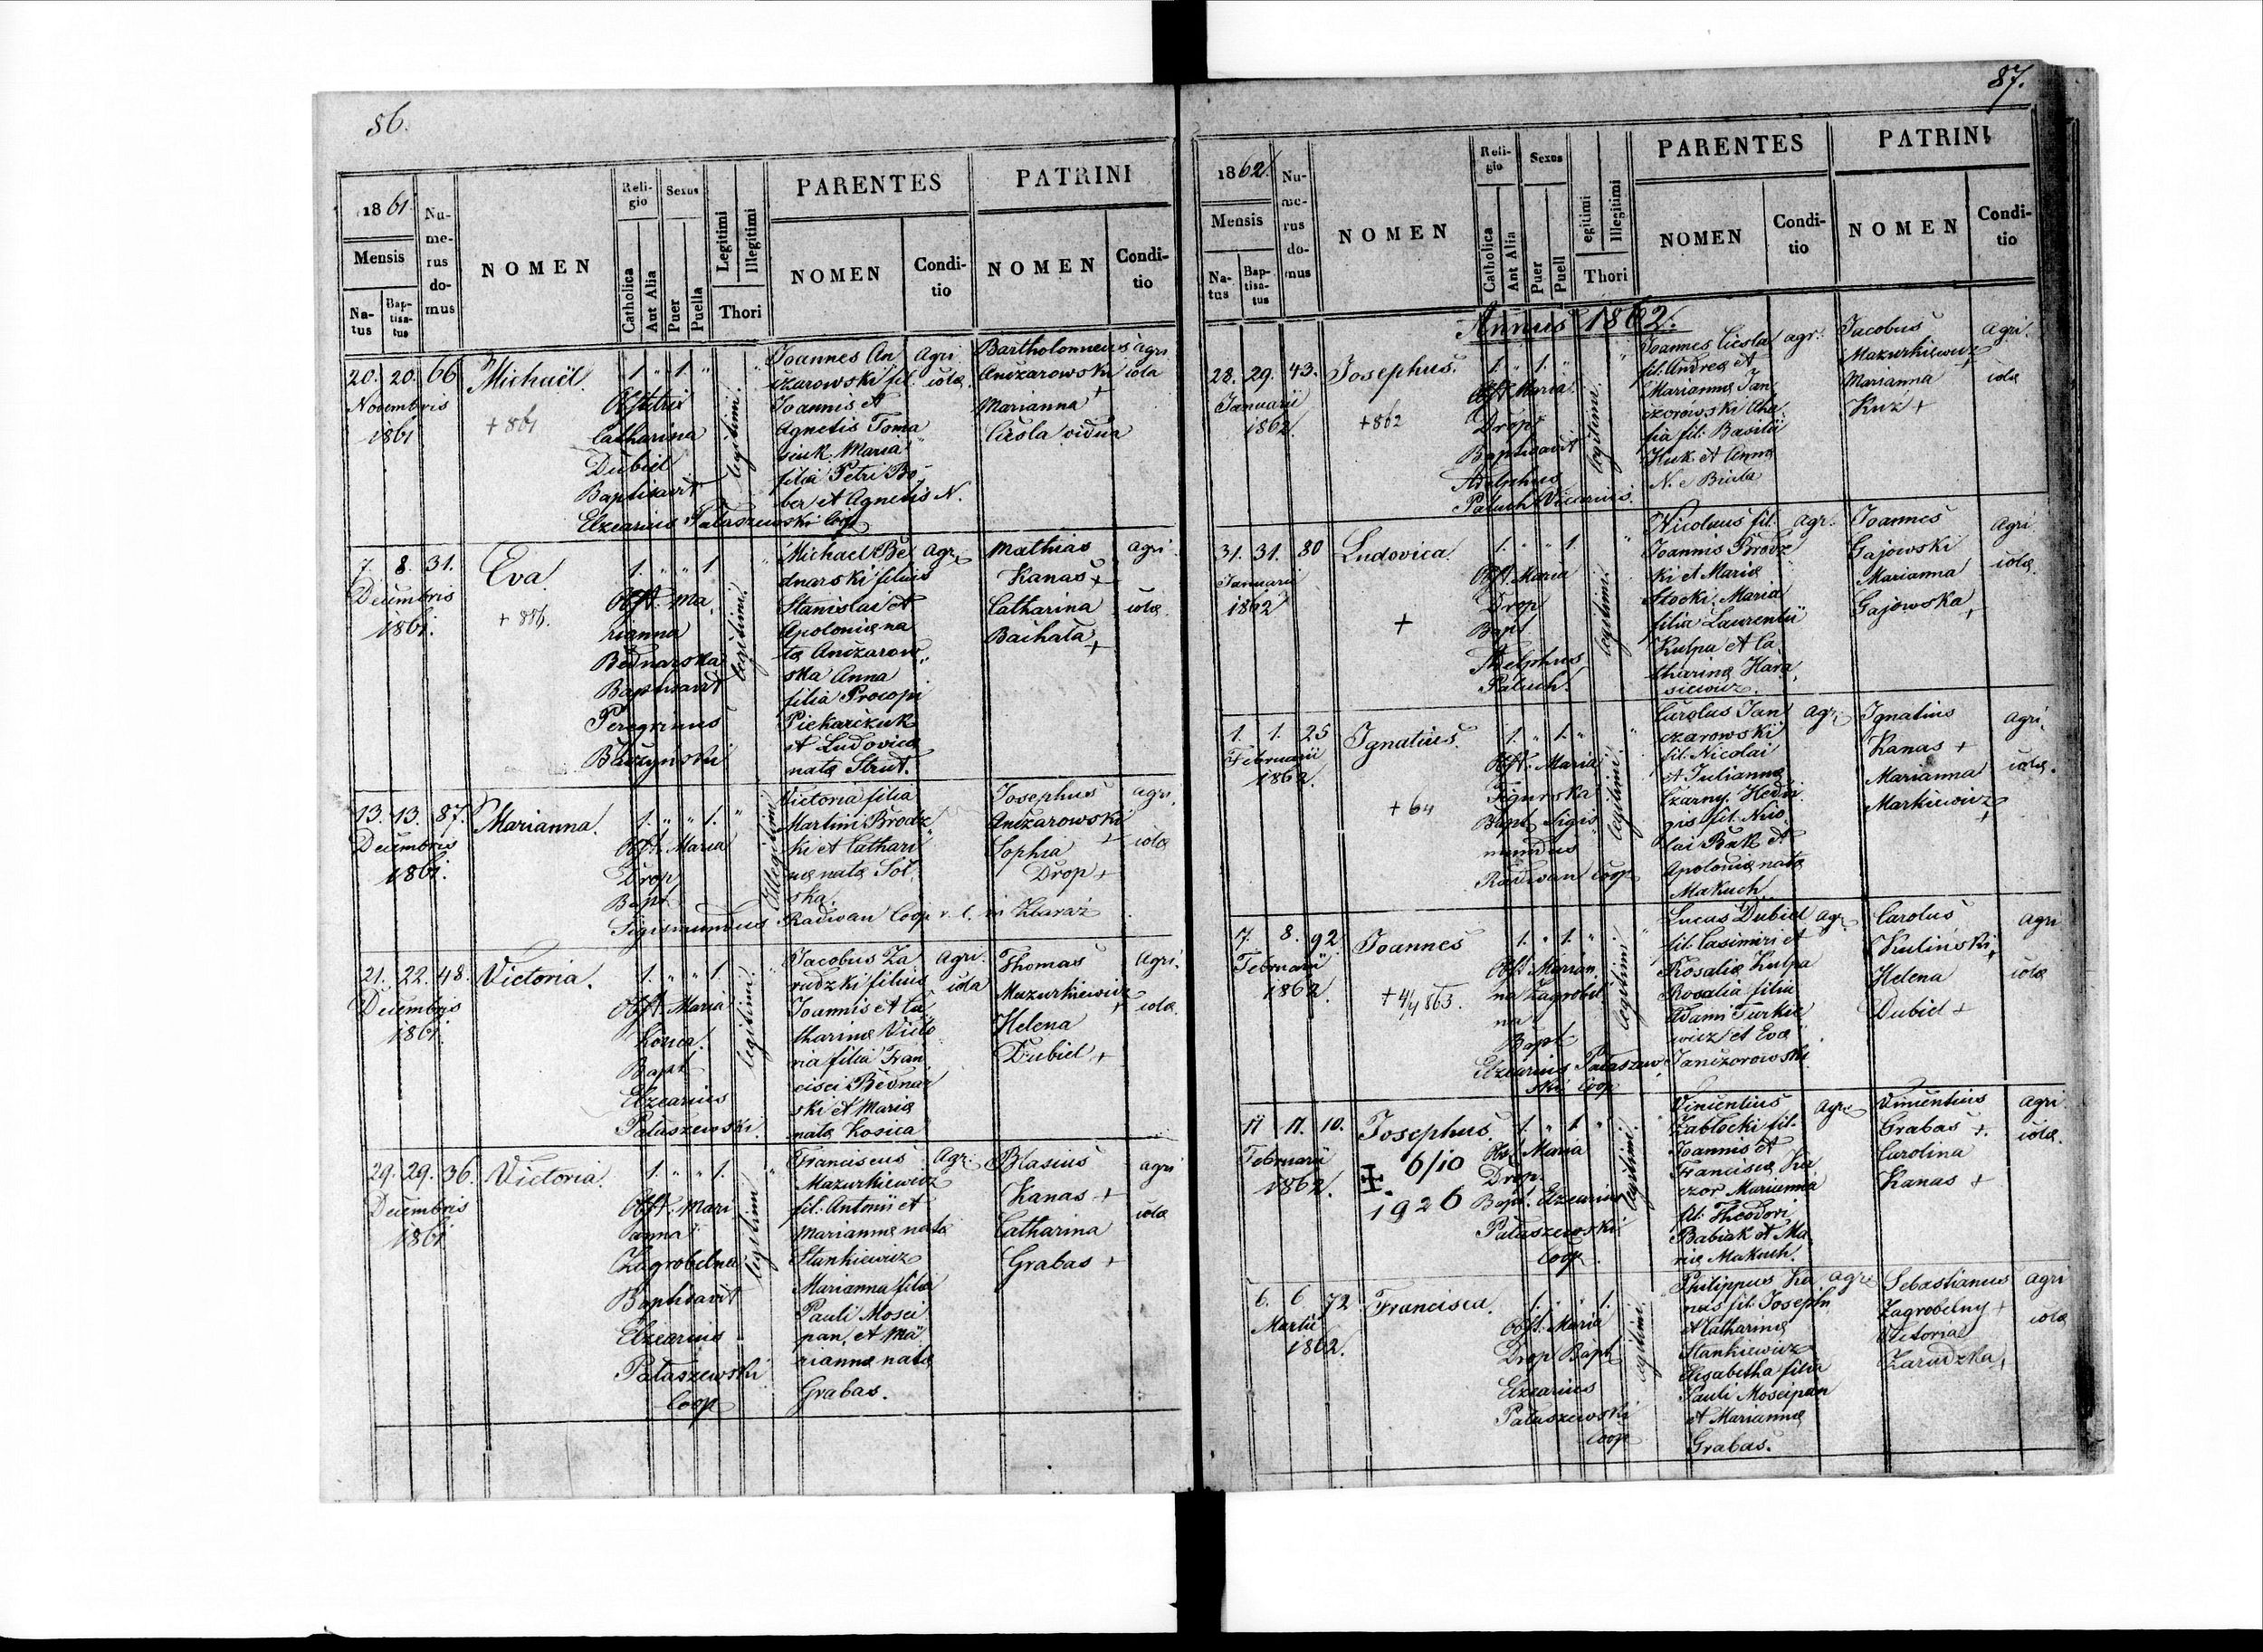 86.
1861
Mensis
Na-
tus
Bap-
tisa-
tus
Nu-
me-
rus
do-
mus
NOMEN
Reli-
gio
Catholica
Aut Alia
Sexus
Puer
Puella
Legitimi
Illegitimi
Thori
PARENTES
NOMEN
Condi-
tio
PATRINI
NOMEN
Condi-
tio
20. 20. 66
Novembris
1861
Michaël.
+ 861
1. " 1. "
Obstetrix
Catharina
Dubiel
Baptisavit
Elzearius Pałaszewski Coop
legitimi.
Joannes An
czarowski fil.
Joannis et
Agnetis Toma
siuk. Maria
filia Petri Bo-
ber et Agnetis N.
Agri
colæ
Bartholomeus
Anczarowski
+
Marianna
Cieśla vidua
agri
cola
7. 8. 31.
Decembris
1861.
Eva
1. " " 1.
Obst. Ma
rianna
Bednarska
Baptisavit
Peregrinus
legitimi.
Michael Be
dnarski filius
Stanislai et
Apoloniæ na
tæ Anczarow
ska Anna
filia Procopi
Piekarczuk
et Ludovicæ
natæ Strut.
Agr.
Mathias
Kanas +
Catharina
Bachała
+
agri
colæ
13. 13. 87.
Decembris
1861.
Marianna.
1. " " 1. "
Obst. Maria
Drop
Bapt
Sigismundus Radwan Coop r. l. in Zbaraż
Illegitimi
Victoria filia
Martini Brodz
ki et Cathari
næ natæ Sol
ska.
Josephus
Anczarowski
+
Sophia
Drop +
agri.
colæ
21. 22. 48.
Decembris
1861.
Victoria.
1. " " 1.
Obst. Maria
Bapt
Elzearius
Pałaszewski.
legitimi.
Jacobus Za
rudzki filius
Joannis et Ca
tharinæ Victo
ria filia Fran
cisci Bednar
ski et Mariæ
natæ Kosica
Agri.
cola
Thomas
Mazurkiewicz
+
Helena
Dubiel +
Agri.
colæ.
29. 29. 36.
Decembris
1861
Victoria.
1. " " 1.
Obst. Mari
anna
Zagrobelna
Baptisavit
Elzearius
Pałaszewski
Coop
legitimi
Franciscus
Mazurkiewicz
fil. Antonii et
Mariannæ natæ
Stankiewicz
Marianna filia
Pauli Mosci
pan. et Ma
riannæ natæ
Grabas.
Agr.
Blasius
Kanas +
Catharina
Grabas +
agri
colæ
87.
1862.
Mensis
Na-
tus
Bap-
tisa-
tus
Nu-
me-
rus
do-
mus
NOMEN
Reli-
gio
Catholica
Aut Alia
Sexus
Puer
Puell
egitimi
Illegitimi
Thori
PARENTES
NOMEN
Condi-
tio
PATRINI
NOMEN
Condi-
tio
Annus 1862.
28. 29. 43.
Januarii
1862.
Josephus.
+862
1. " 1. "
Obst Maria
Drop
Baptisavit
Adolphus
Paluch Vicarius.
legitimi.
Joannes Cieśla
fil. Andreæ et
Mariannæ Jan
czorowski
fil. Basilii
Huk et Annæ
agr.
Jacobus
Mazurkiewicz
+
Marianna
Kuź +
agri.
colæ
31. 31. 80
Januarii
1862
Ludovica.
+
1. " " 1.
Obst. Maria
Drop
Bapt.
Adolphus
Paluch.
legitimi.
Nicolaus fil.
Joannis Brodz
ki et Mariæ
Stocki. Maria
filia Laurentii
Kulpa et Ca
tharinæ Hara
siewicz.
agr.
Joannes
Gajowski
Marianna
Gajowska
+
Agri
colæ.
1. 1. 25
Februarii
1862.
Ignatius.
+ 64
1. " 1. "
Obst. Maria
Figurska
Bapt Sigis
mundus
Radwan Coop
legitimi.
Carolus Jan
czarowski
fil. Nicolai
et Juliannæ
Czarny. Hedvi
gis fil. Nico
lai Bak et
Apoloniæ natæ
Makuch
agr.
Ignatius
Kanas +
Marianna
Markiewicz
+
agri.
colæ.
7. 8. 92.
Februarii
1862.
Joannes
+ 4/4 863.
1. " 1. "
Obst Marian
na Zagrobel
na
Bapt
Elzearius Pałaszew
ski Coop
legitimi
Lucas Dubiel
fil. Casimiri et
Rosaliæ Kulpa
Rosalia filia
Adami Turkie
wicz et Evæ
Janczorowski
agr.
Carolus
Kuliński
+
Helena
Dubiel +
agri
colæ
17 17. 10.
Februarii
1862.
Josephus.
6/10
1926
1. " 1. "
Obst Maria
Drop.
Bapt. Elzearius
Pałaszewski
Coop.
legitimi.
Vincentius
Zabłocki fil.
Joannis et
Franciscæ Ka
czor Marianna
fil. Theodori
Babiak et Ma
riæ Makuch.
Agr.
Vincentius
Grabas +.
Carolina
Kanas +
agri.
colæ.
6. 6 72
Martii
1862.
Francisca.
1. " " 1.
Obst. Maria
Drop Bapt
Elzearius
Pałaszewski
Coop
legitimi.
Philippus Ka
nas fil. Josephi
et Catharinæ
Stankiewicz
Elisabetha filia
Pauli Moscipan
et Mariannæ
Grabas.
agr.
Sebastianus
Zagrobelny +
Victoria
Zarudzka
+
agri
colæ